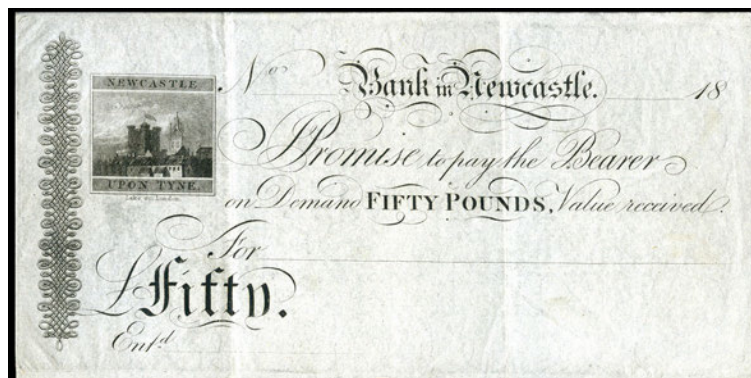 NEWCASTLE
UPON TYNE.
No Bank in Newcastle. 18
I Promise to pay the Bearer
on Demand FIFTY POUNDS, Value received.
For
£ Fifty.
Entd